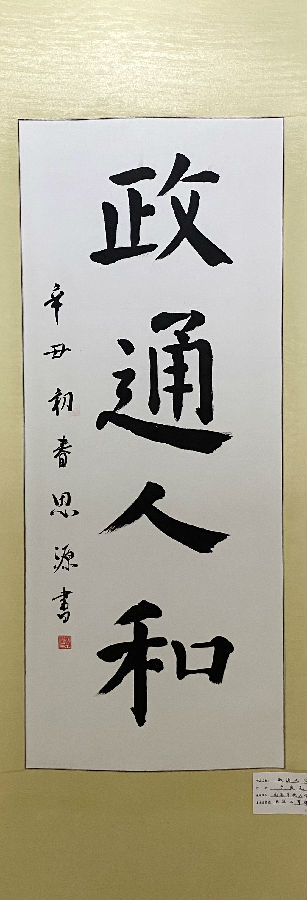 政通人和
辛丑初春思源書